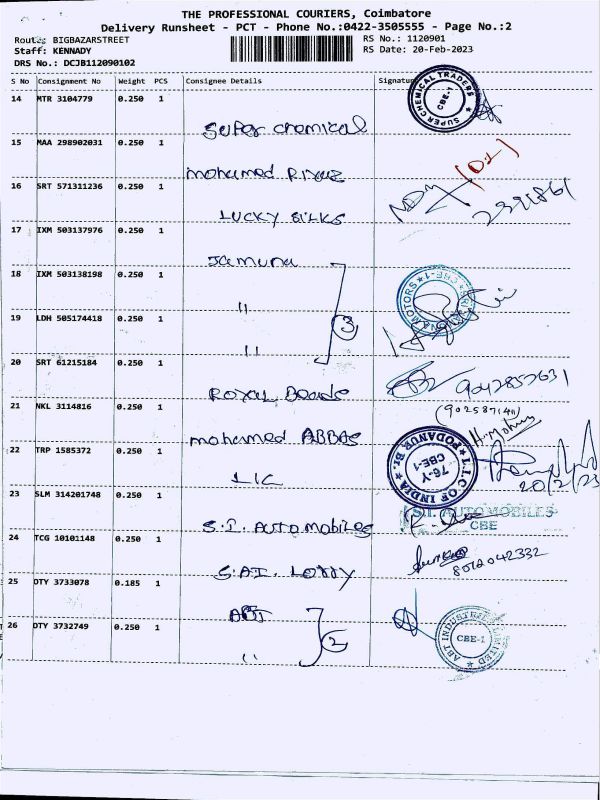 THE PROFESSIONAL COURIERS, Coimbatore
Delivery Runsheet - PCT - Phone No.:0422-3505555 - Page No.:2
Route: BIGBAZARSTREET
RS No.: 1120901
Staff: KENNADY
RS Date: 20-Feb-2023
DRS No.: DCJB112090102
S No Consignment No Weight PCS Consignee Details Signature
14 MTR 3104779 0.250 1
Super chemical
SUPER CHEMICAL TRADERS CBE-1
15 MAA 298902031 0.250 1
mohamed Riyaz
16 SRT 571311236 0.250 1
LUCKY SILKS
17 IXM 503137976 0.250 1
Jamuna
18 IXM 503138198 0.250 1
"
3
MOTORS CBE-1
19 LDH 505174418 0.250 1
"
20 SRT 61215184 0.250 1
ROYAL Beads
9042852631
21 NKL 3114816 0.250 1
(9025871411)
mohamed ABBAS
22 TRP 1585372 0.250 1
LIC
L.I.C OF INDIA PODANUR Br. 76-Y CBE-1
20/2/23
23 SLM 314201748 0.250 1
S.I. Automobiles
S.I. AUTOMOBILES
CBE
24 TCG 10101148 0.250 1
S.A.I. Lorry
8012042332
25 DTY 3733078 0.185 1
ABT
26 DTY 3732749 0.250 1
"
2
ABT INDUSTRIES LIMITED CBE-1